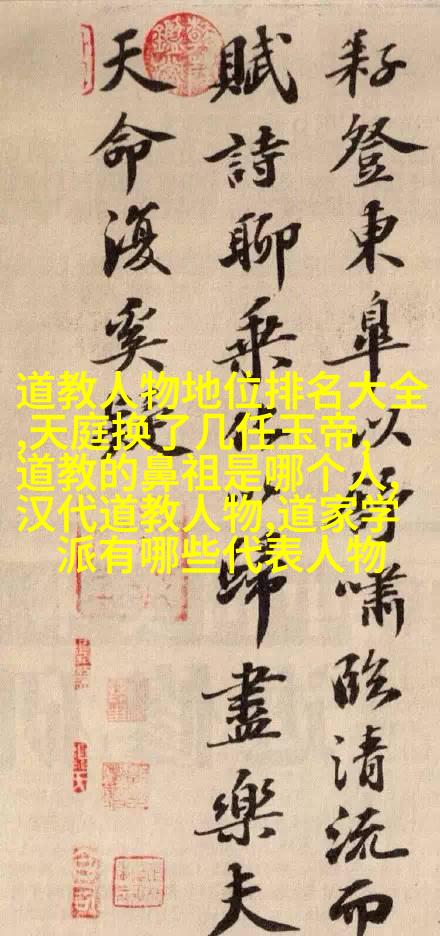 耔登東皐以舒嘯臨清流而
賦詩聊乘化以歸盡樂夫
天命復奚疑
道教人物地位排名大全
,天庭换了几任玉帝,
道教的鼻祖是哪个人,
汉代道教人物,道家学
派有哪些代表人物